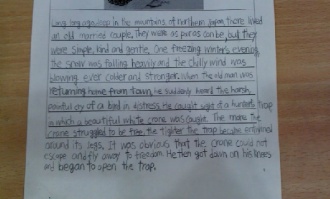 Long, long ago, deep in the mountains of northern Japan, there lived
an old married couple. They were as poor as can be, but they
were simple, kind and gentle. One freezing winter's evening,
the snow was falling heavily and the chilly wind was
blowing ever colder and stronger. When the old man was
returning home from town, he suddenly heard the harsh,
painful cry of a bird in distress. He caught sight of a hunter's trap
in which a beautiful white crane was caught. The more the
crane struggled to be free, the tighter the trap became entwined
around its legs. It was obvious that the crane could not
escape and fly away to freedom. He then got down on his knees
and began to open the trap.